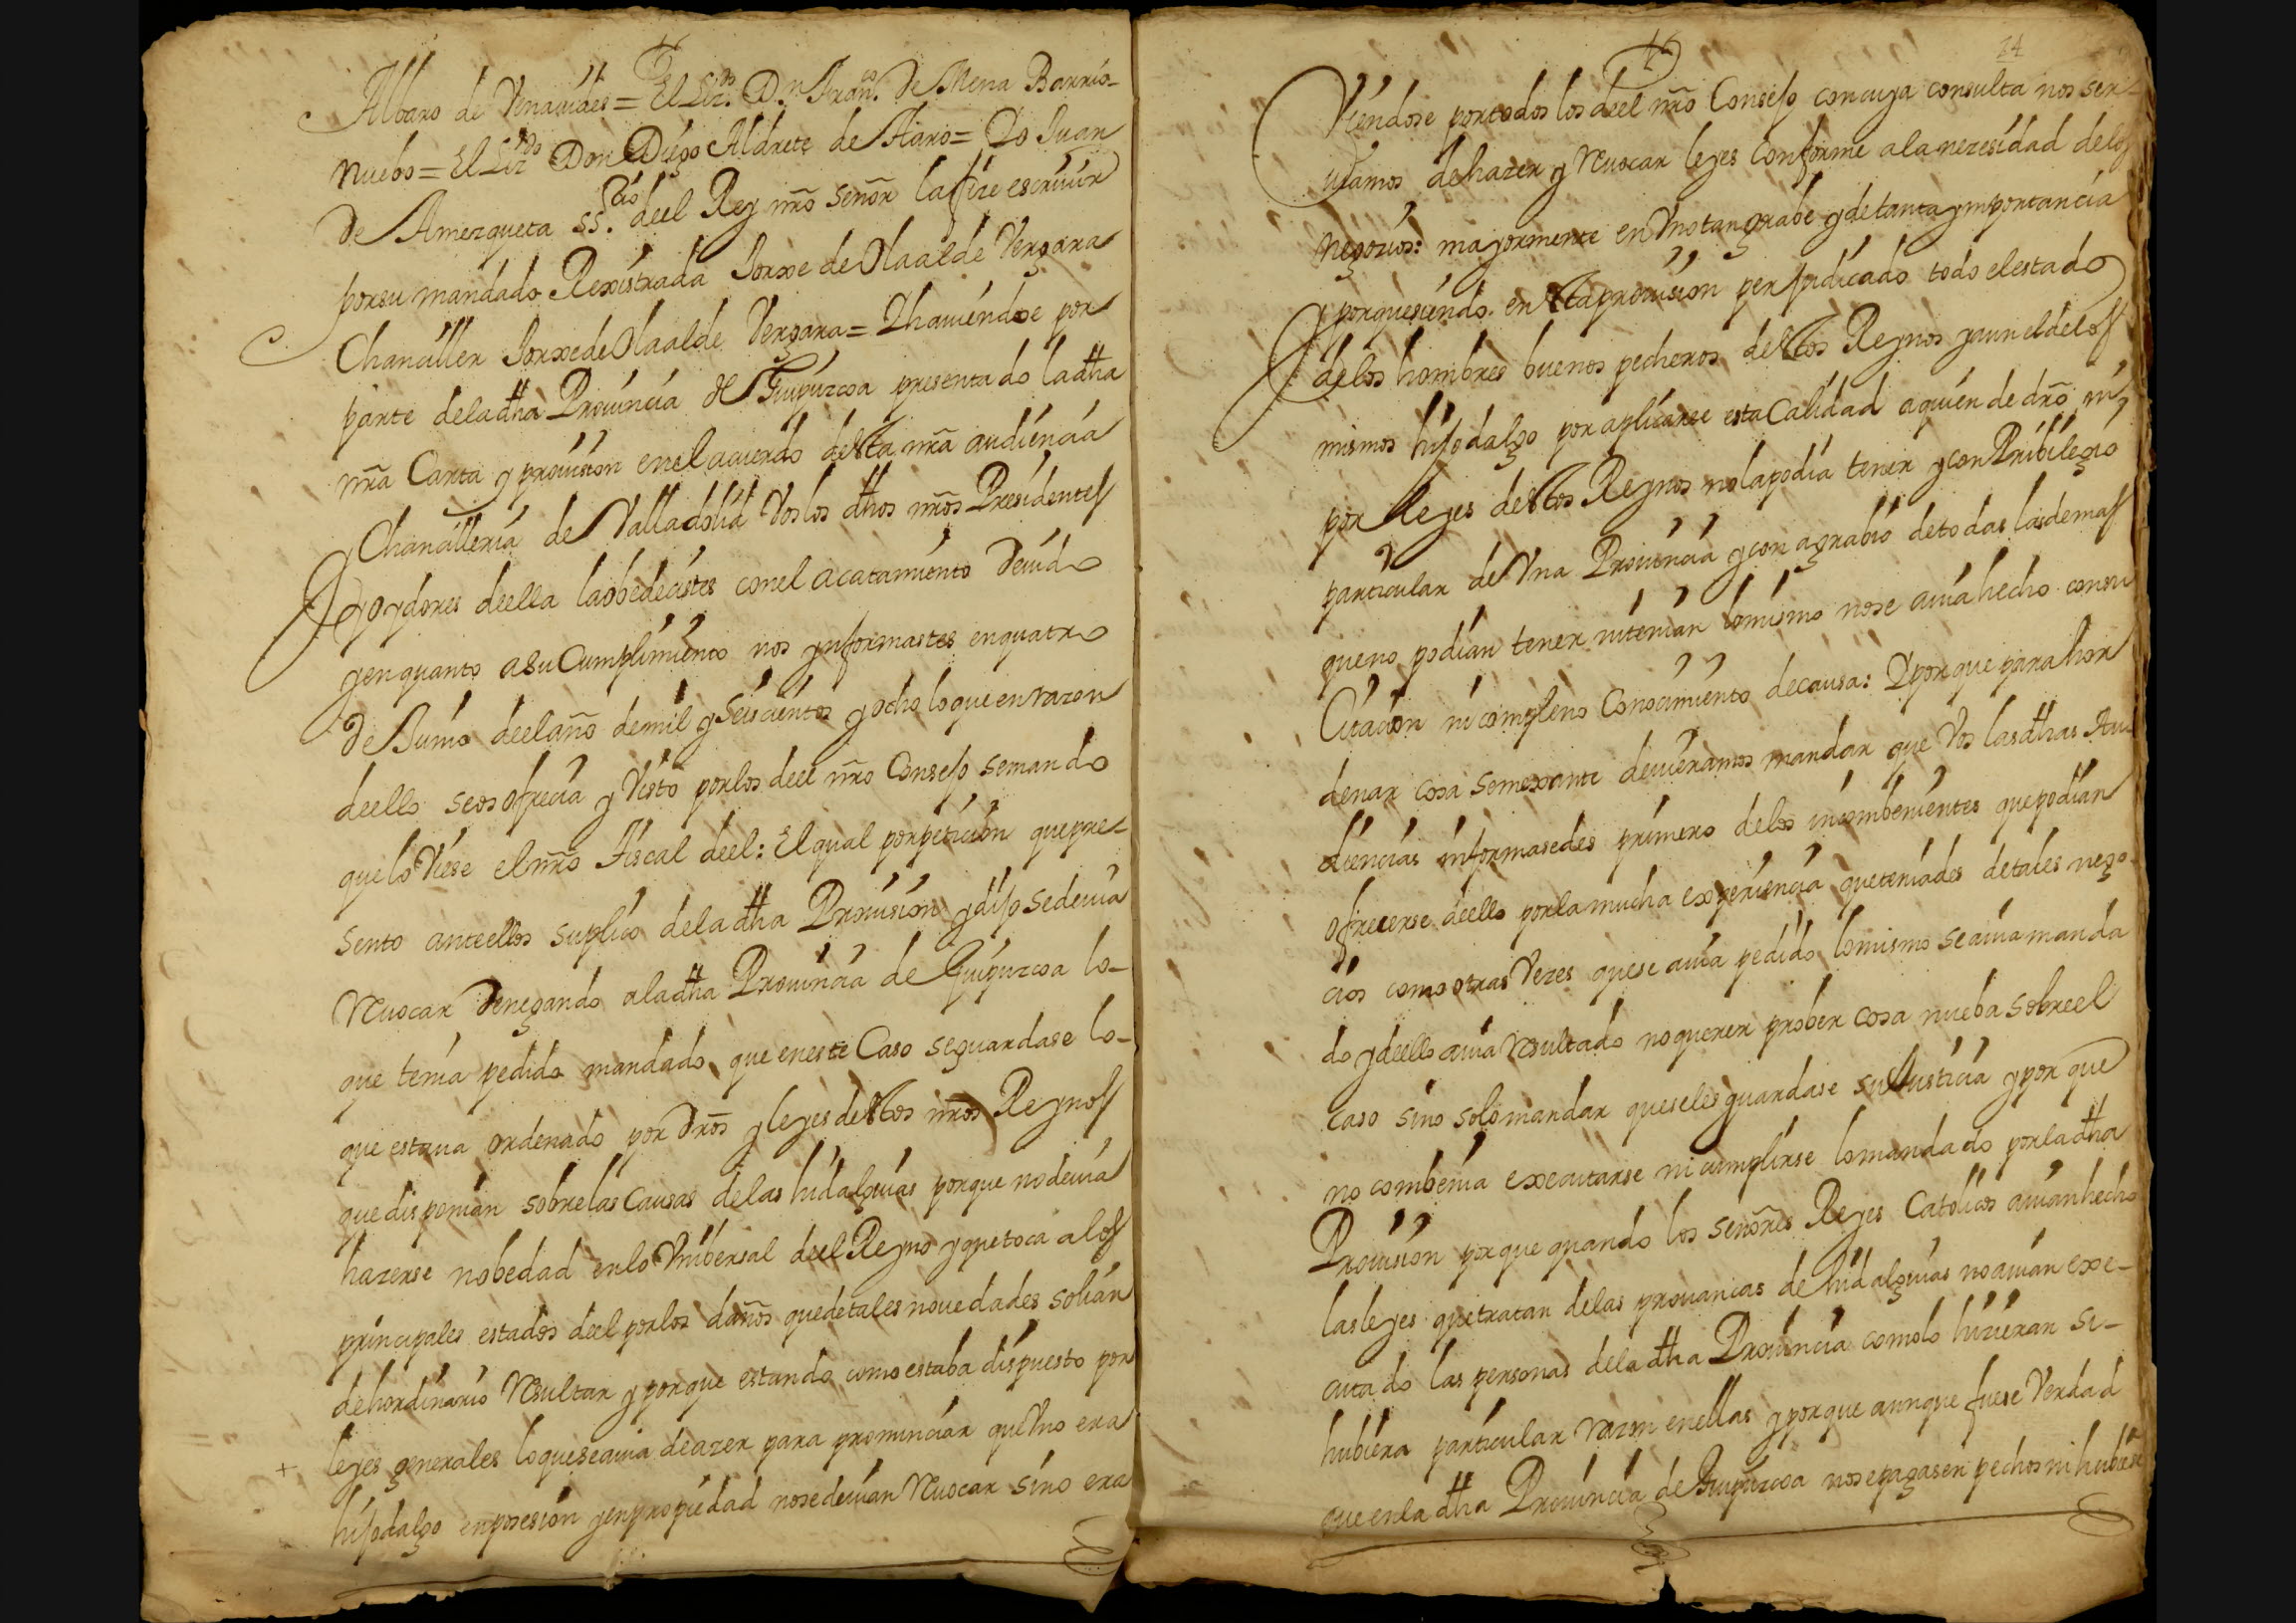 Albaro de Venauides = El Liz.do D.n Fran.co de Mena Barrio-
nuebo = El Liz.do Don Diego Aldrete de Haro = Yo Juan
de Amezqueta SS.rio deel Rey nr̃o señor la fize escriuir
por su mandado Rexistrada Jorxe de Olaalde Vergara
Chanciller Jorxe de Olaalde Vergara = Y hauiendose por
parte de la dh̃a Prouincia de Guipuzcoa presentado la dh̃a
nr̃a Carta y prouision en el acuerdo desta nr̃a audiencia
y Chancilleria de Valladolid Vos los dh̃os nr̃os Presidentes
y oydores deella la obedecistes con el acatamiento deuido
y en quanto a su Cumplimiento nos ynformastes en quatro
de Junio deel año de mil y seiscientos y ocho lo que en razon
deello se os ofrecia y Visto por los deel nr̃o Consejo se mando
que lo Viese el nr̃o Fiscal deel: El qual por peticion que pre-
sento ante ellos suplico de la dh̃a Prouision y dijo se deuia
Reuocar denegando a la dh̃a Prouincia de Guipuzcoa lo-
que tenia pedido mandado que en este Caso se guardase lo-
que estaua ordenado por dr̃os y leyes destos nr̃os Reynos
que disponian sobre las Causas de las hidalguias porque no deuia
hazerse nobedad en lo Vnibersal deel Reyno y que toca a los
principales estados deel por los daños que de tales nouedades solian
de hordinario Resultar y porque estando como estaba dispuesto por
leyes generales lo que se auia de azer para pronunciar que Vno era
hijodalgo en posesion y en propiedad no se deuian Reuocar sino era
Viendose por todos los deel nr̃o Consejo con cuya consulta nos ser-
uiamos de hazer y Reuocar leyes conforme a la nezesidad de los
negozios: mayormente en Vno tan grabe y de tanta ymportancia
y porque siendo en esta prouision perjudicado todo el estado
de los hombres buenos pecheros destos Reynos y aun el de los
mismos hijodalgo por aplicarse esta Calidad a quien de dr̃o ni
por leyes destos Reynos no la podia tener y con Pribilegio
particular de Vna Prouincia y con agrabio de todas las demas
que no podian tener ni tenian lo mismo no se auia hecho con su
Citacion ni con pleno Conocimiento de causa: Y porque para hor
denar cosa semexante deuieramos mandar que Vos las dh̃as Au-
diencias informasedes primero de los incombenientes que podian
ofrecerse deello por la mucha experiencia que teniades de tales nego-
cios como otras Vezes que se auia pedido lo mismo se auia manda
do y deello auia Resultado no querer prober cosa nueba sobre el
caso sino solo mandar que se les guardase su Justicia y por que
no combenia executarse ni cumplirse lo mandado por la dh̃a
Prouision porque quando los señores Reyes Catolicos auian hecho
las leyes que tratan de las prouancas de hidalguias no auian exe-
cutado las personas de la dh̃a Prouincia como lo hizieran si-
hubiera particular razon en ellas y porque aunque fuese Verdad
que en la dh̃a Prouincia de Guipuzcoa no se pagasen pechos ni hubiese